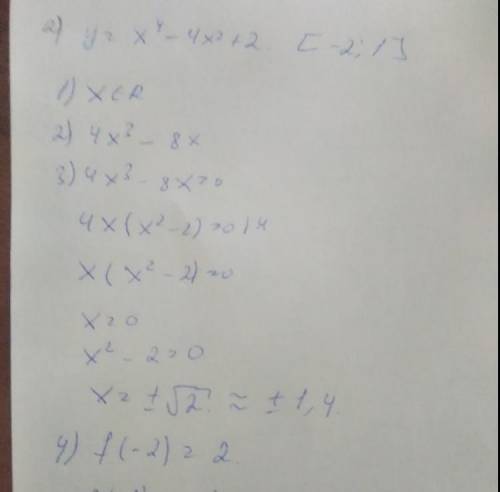 a) y = x⁴ - 4x² + 2. [-2; 1]
1) x ∈ R
2) 4x³ - 8x
3) 4x³ - 8x = 0
4x(x² - 2) = 0 | 4
x(x² - 2) = 0
x = 0
x² - 2 = 0
x = ±√2 ≈ ± 1,4.
4) f(-2) = 2.